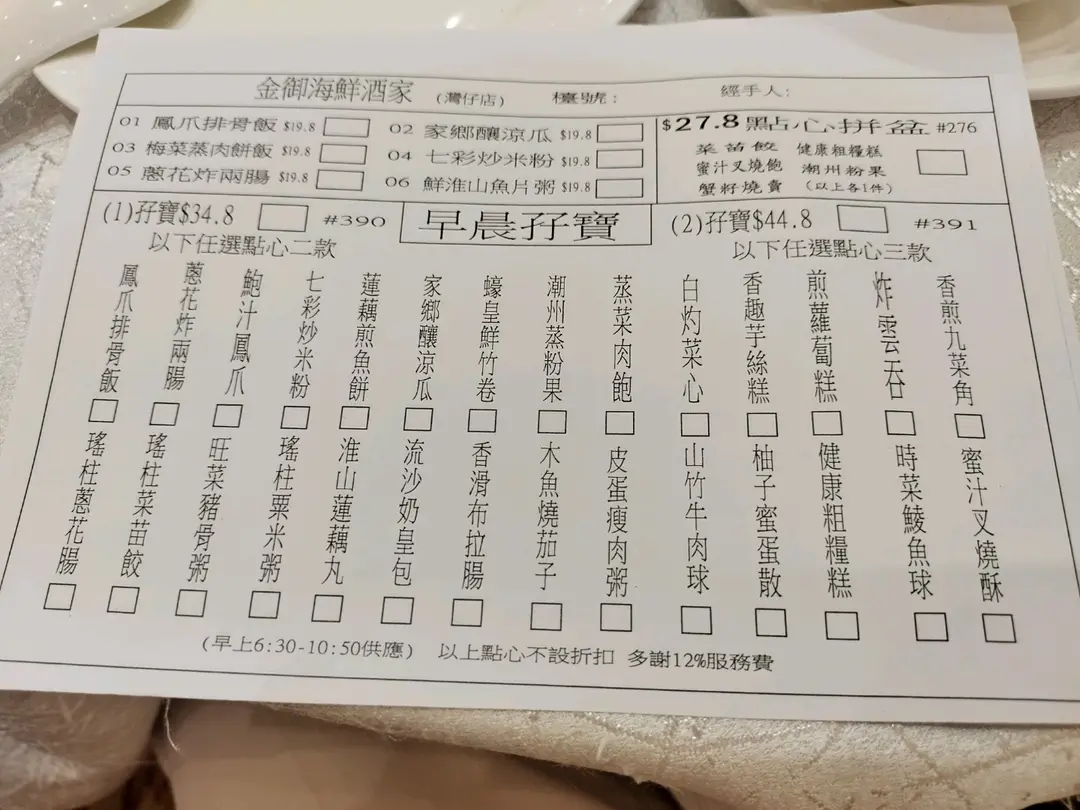 金御海鮮酒家 (灣仔店) 檯號: 經手人:
01 鳳爪排骨飯 $19.8
02 家鄉釀涼瓜 $19.8
03 梅菜蒸肉餅飯 $19.8
04 七彩炒米粉 $19.8
05 蔥花炸兩腸 $19.8
06 鮮淮山魚片粥 $19.8
$27.8點心拼盆 #276
菜苗餃 健康粗糧糕
蜜汁叉燒飽 潮州粉果
蟹籽燒賣 (以上各1件)
(1)孖寶$34.8 #390
以下任選點心二款
早晨孖寶
(2)孖寶$44.8 #391
以下任選點心三款
鳳爪排骨飯
蔥花炸兩腸
鮑汁鳳爪
七彩炒米粉
蓮藕煎魚餅
家鄉釀涼瓜
蠔皇鮮竹卷
潮州蒸粉果
蒸菜肉飽
白灼菜心
香趣芋絲糕
煎蘿蔔糕
炸雲吞
香煎九菜角
瑤柱蔥花腸
瑤柱菜苗餃
旺菜豬骨粥
瑤柱粟米粥
淮山蓮藕丸
流沙奶皇包
香滑布拉腸
木魚燒茄子
皮蛋瘦肉粥
山竹牛肉球
柚子蜜蛋散
健康粗糧糕
時菜鯪魚球
蜜汁叉燒酥
(早上6:30-10:50供應) 以上點心不設折扣 多謝12%服務費